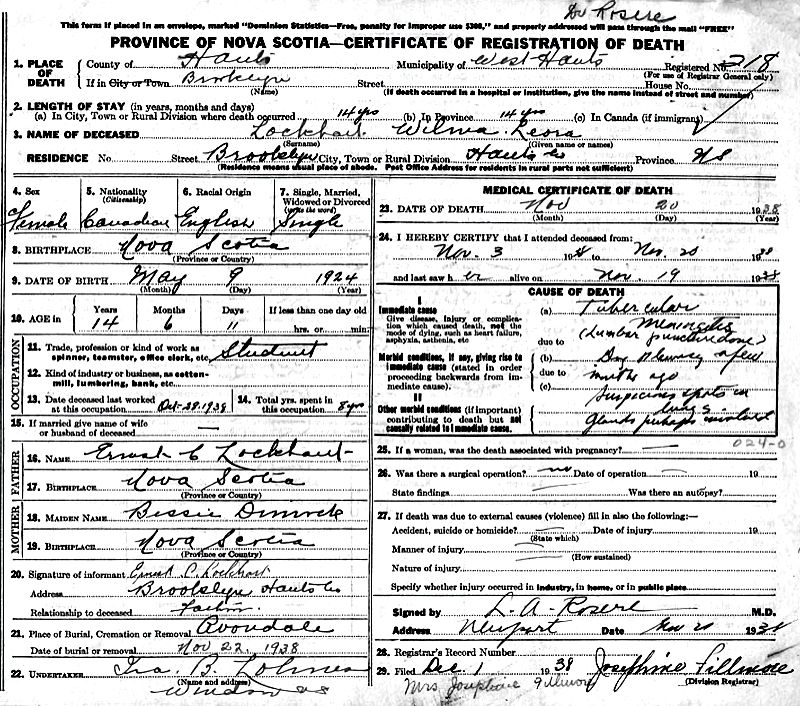 Dr Rosere
This form if placed in an envelope, marked "Dominion Statistics—Free, penalty for improper use $300," and property addressed will pass through the mail "FREE"
PROVINCE OF NOVA SCOTIA—CERTIFICATE OF REGISTRATION OF DEATH
1. PLACE OF DEATH County of Hants Municipality of West Hants Registered No. 318
(For use of Registrar General only)
If in City or Town Brooklyn Street House No.
(Name) (If death occurred in a hospital or institution, give the name instead of street and number)
2. LENGTH OF STAY (in years, months and days)
(a) In City, Town or Rural Division where death occurred 14 yrs (b) In Province 14 yrs (c) In Canada (if immigrant)
3. NAME OF DECEASED Lockhart Wilma Leora
(Surname) (Given name or names)
RESIDENCE No. Street Brooklyn City, Town or Rural Division Hants Co Province NS
(Residence means usual place of abode. Post Office Address for residents in rural parts not sufficient)
4. Sex 5. Nationality 6. Racial Origin 7. Single, Married,
(Citizenship) Widowed or Divorced
(write the word)
Female Canadian English Single
8. BIRTHPLACE Nova Scotia
(Province or Country)
9. DATE OF BIRTH May 9 1924
(Month) (Day) (Year)
10. AGE in Years Months Days If less than one day old
14 6 11 hrs. or min.
OCCUPATION
11. Trade, profession or kind of work as Student
spinner, teamster, office clerk, etc.
12. Kind of industry or business, as cotton-
mill, lumbering, bank, etc.
13. Date deceased last worked at this occupation Oct-28-1938 14. Total yrs. spent in this occupation 8 yrs
15. If married give name of wife
or husband of deceased
FATHER
16. NAME Ernest C Lockhart
17. BIRTHPLACE Nova Scotia
(Province or Country)
MOTHER
18. MAIDEN NAME Bessie Dimock
19. BIRTHPLACE Nova Scotia
(Province or Country)
20. Signature of informant Ernest C. Lockhart
Address Brooklyn Hants Co
Relationship to deceased Father
21. Place of Burial, Cremation or Removal Avondale
Date of burial or removal Nov 22, 1938
22. UNDERTAKER Ira B. Lohnes
(Name and address)
Windsor NS
MEDICAL CERTIFICATE OF DEATH
23. DATE OF DEATH Nov 20 1938
(Month) (Day) (Year)
24. I HEREBY CERTIFY that I attended deceased from:
Nov. 3 1938 to Nov. 20 1938
and last saw her alive on Nov. 19 1938
CAUSE OF DEATH
I
Immediate cause
Give disease, injury or complication which caused death, not the mode of dying, such as heart failure, asphyxia, asthenia, etc
Morbid conditions, if any, giving rise to immediate cause (stated in order proceeding backwards from immediate cause).
II
Other morbid conditions (if important) contributing to death but not causally related to immediate cause.
(a) Tubercular
Meningitis
due to (Lumbar puncture done)
(b) Dry Pleurisy a few
due to months ago
(c) Suspicious spots in
lungs.
Glands perhaps involved
024-0
25. If a woman, was the death associated with pregnancy?
26. Was there a surgical operation? no Date of operation 19
State findings Was there an autopsy?
27. If death was due to external causes (violence) fill in also the following:—
Accident, suicide or homicide? Date of injury 19
(State which)
Manner of injury
(How sustained)
Nature of injury
Specify whether injury occurred in industry, in home, or in public place
Signed by L. A. Rosere M.D.
Address Newport Date Nov 20 1938
28. Registrar's Record Number
29. Filed Dec. 1 1938 Josephine Fillmore
(Division Registrar)
Mrs Josephine Fillmore